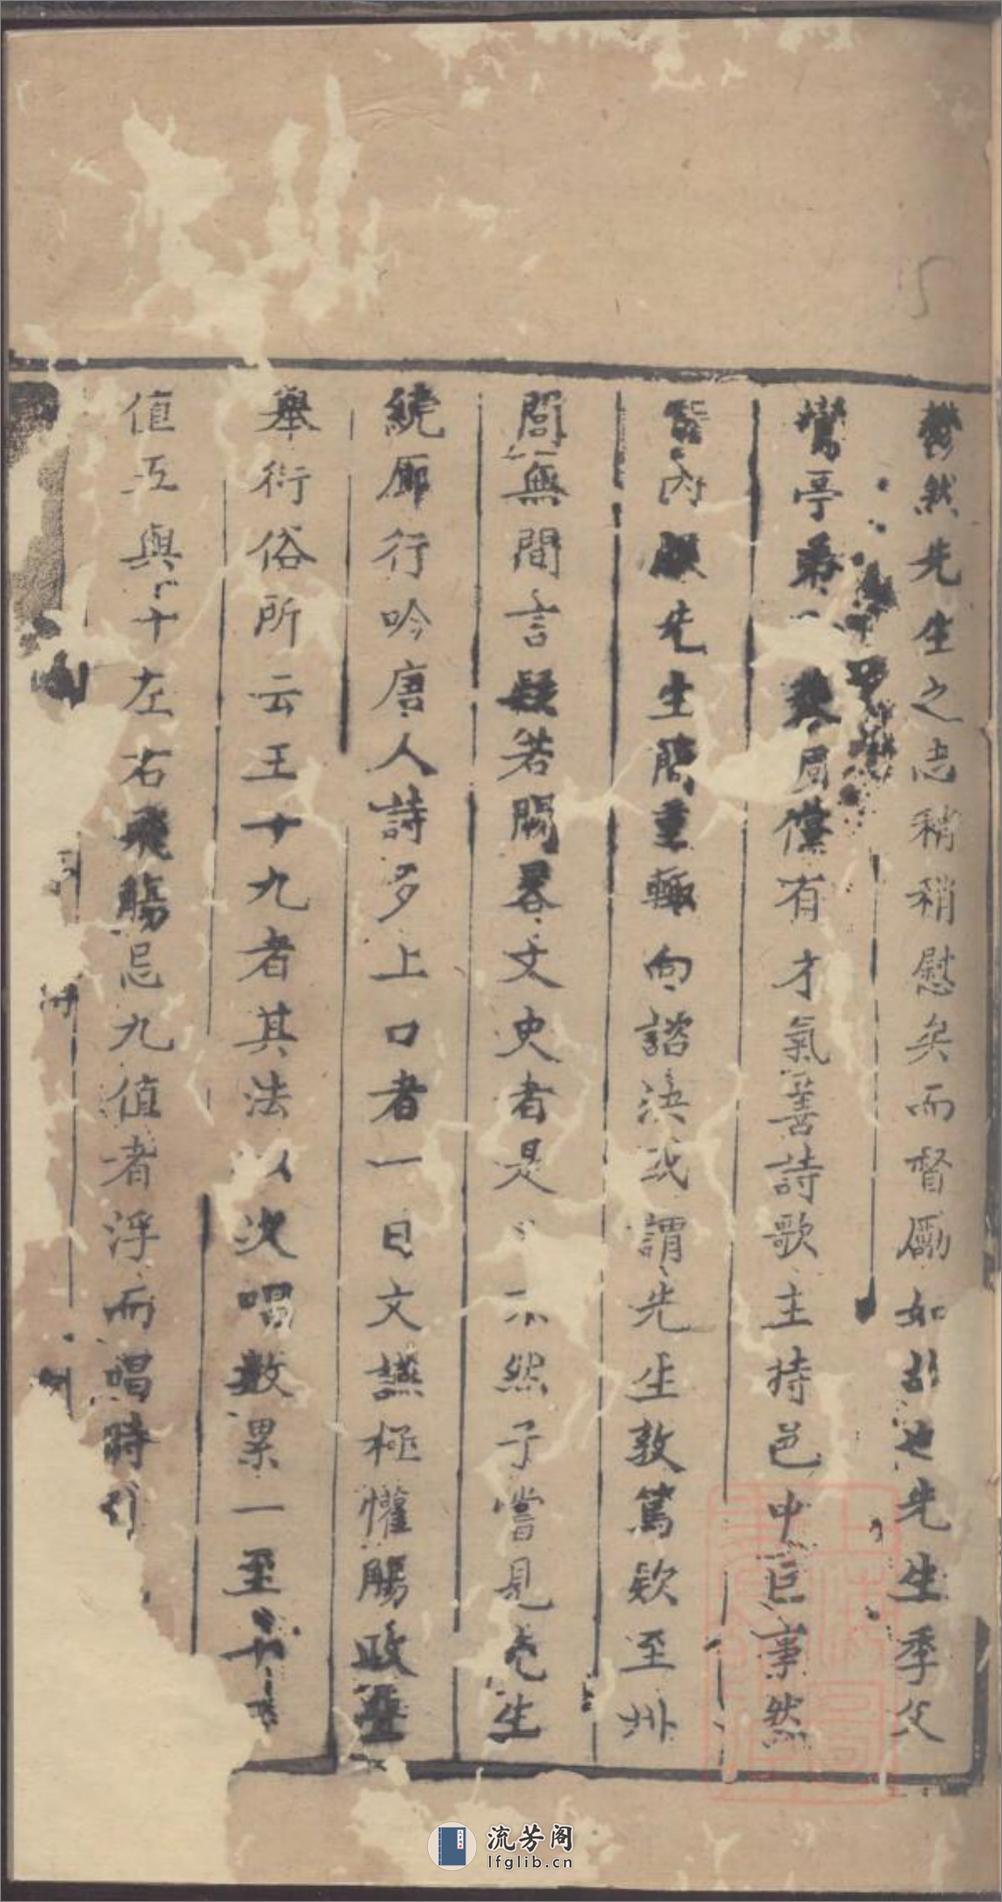 鬱然先生之志稍稍慰矣而督勵如故也先生季父
鶯亭弟一 周儻有才氣善詩歌主持邑中巨事然
內 先生簡重輒向諮決或謂先生敦篤欵至州
閭無間言疑若闊畧文史者是 不然予嘗見先生
繞廊行吟唐人詩多上口者一日文讌極懽觴政疊
舉衍俗所云王十九者其法以次唱數累一至十
值五與十左右飛觴忌九值者浮而唱時
15
流芳阁
lfglib.cn